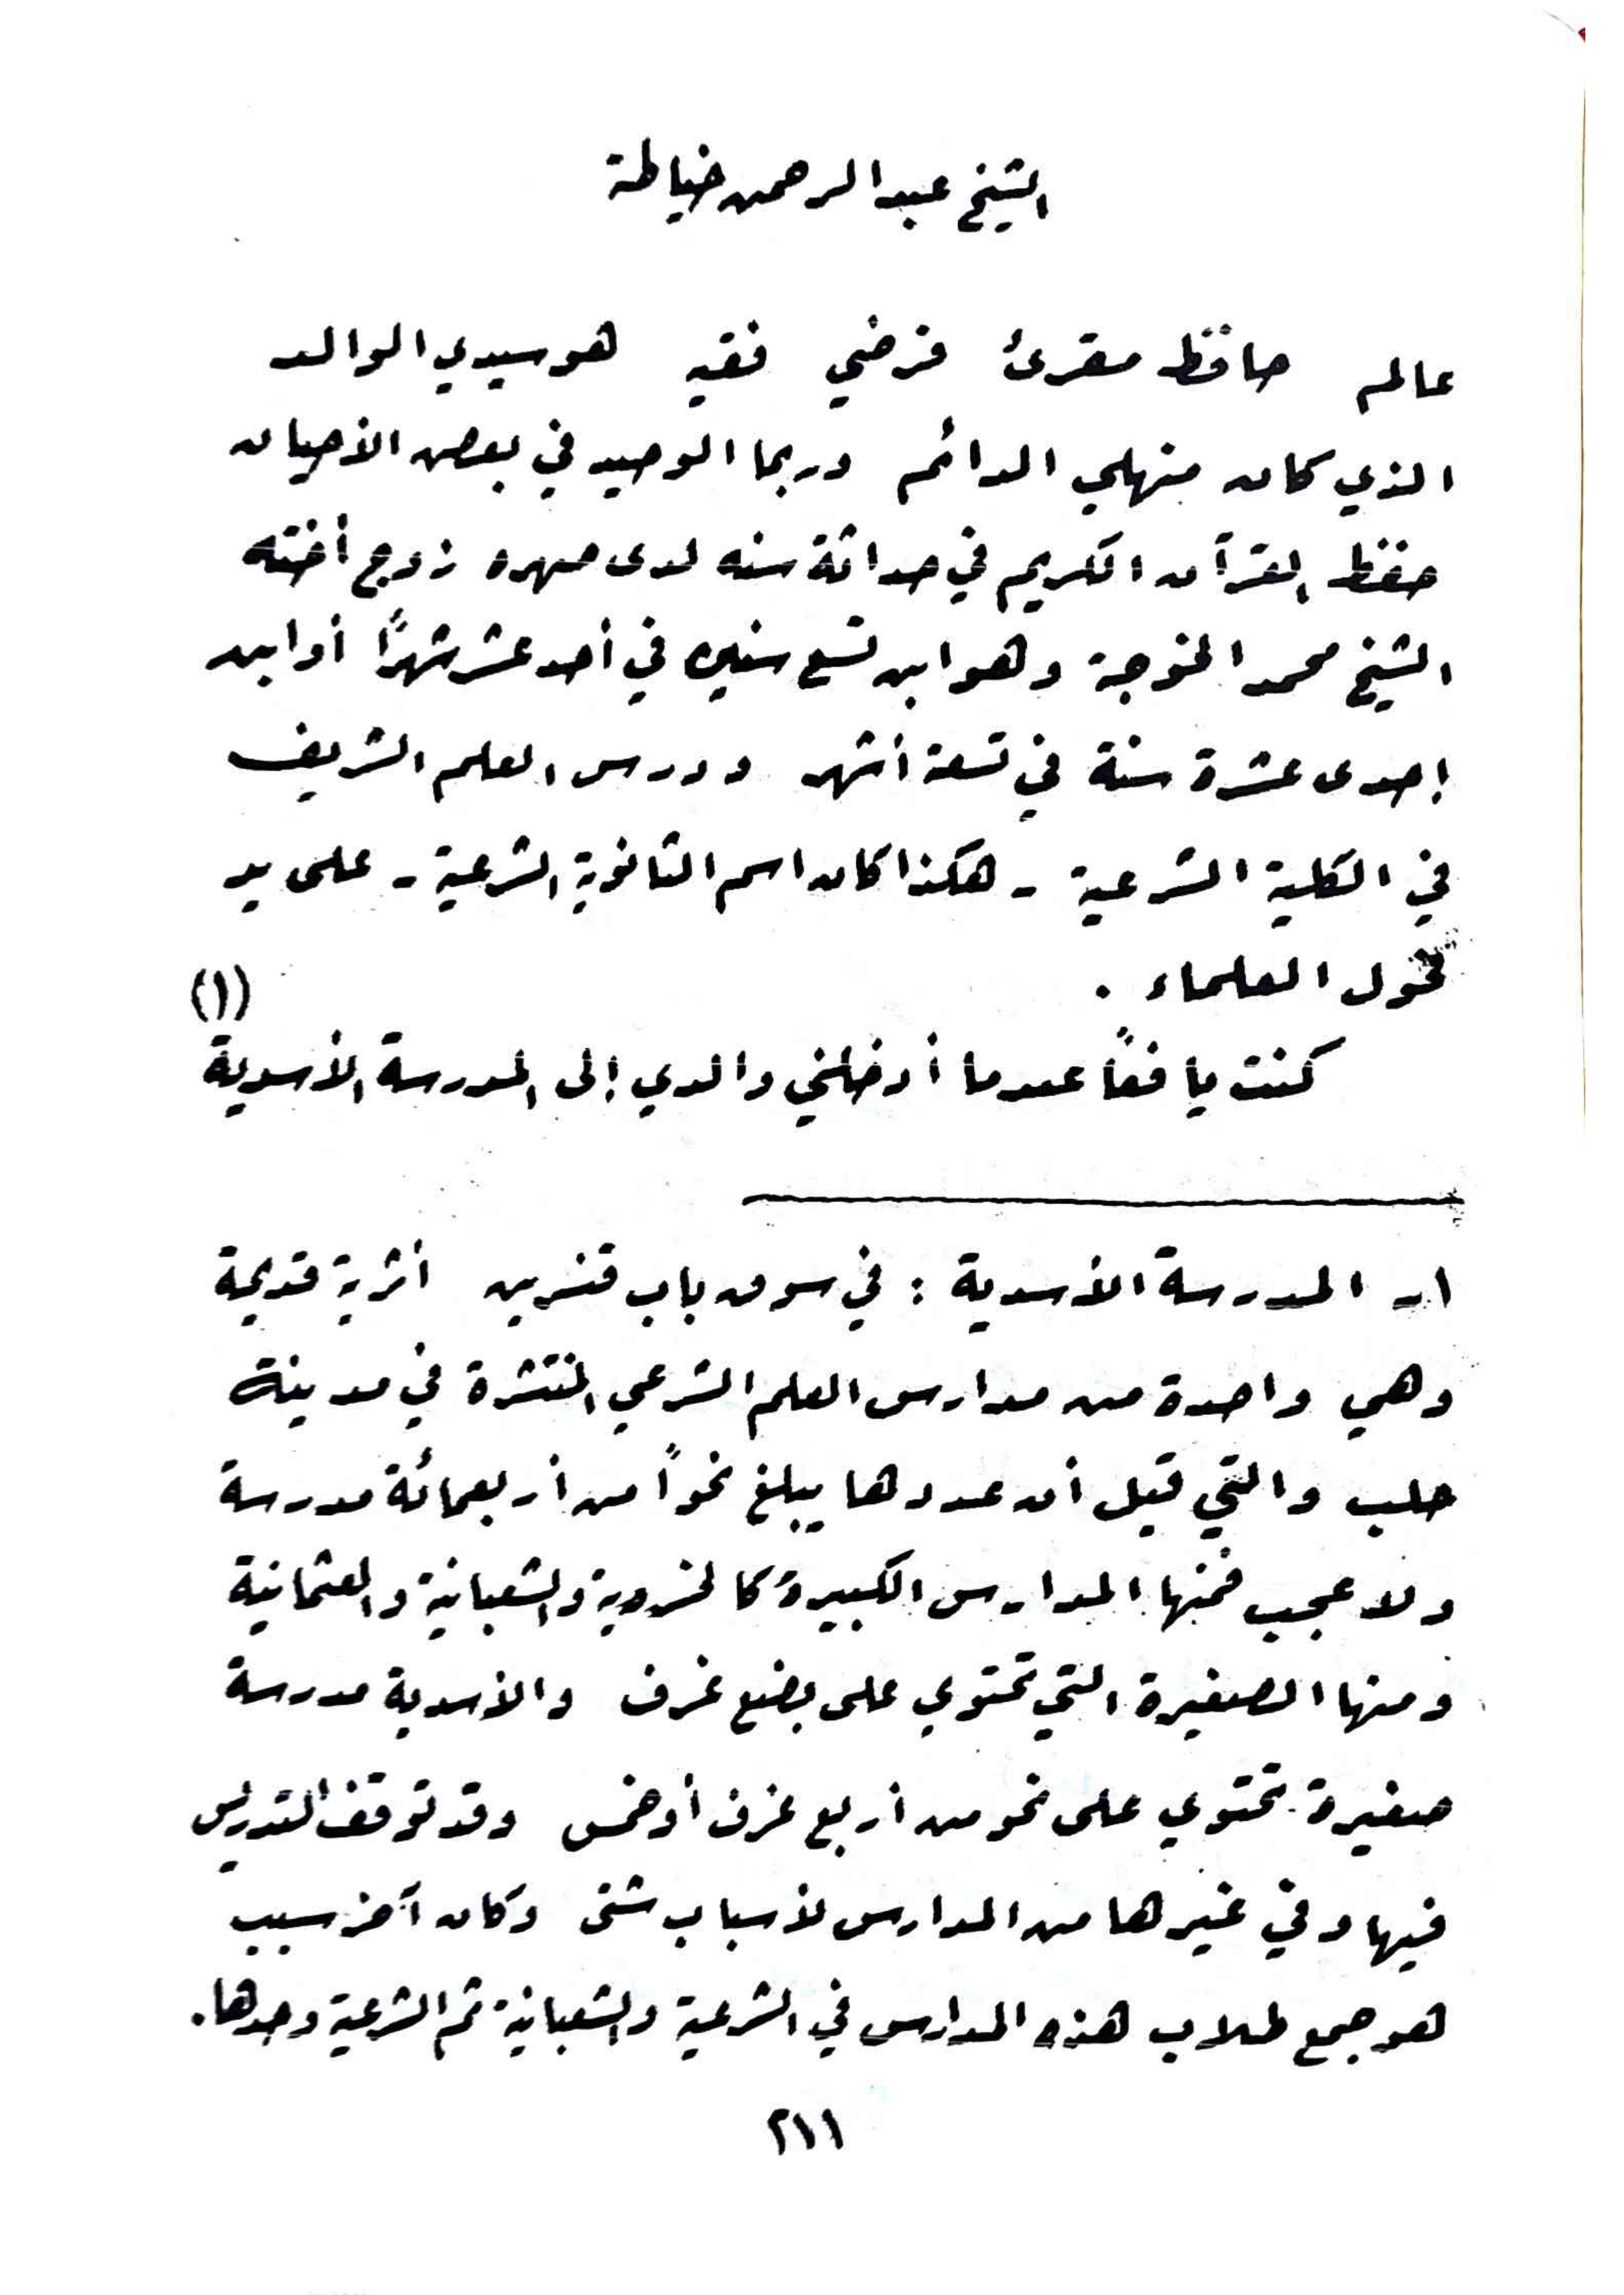 الشيخ عبد الرحمن خياطة
عالم حافظ مقرئ فرضي فقيه هو سيدي الوالد
الذي كان منهلي الدائم وربما الوحيد في بعض الأحيان
حفظ القرآن الكريم في حداثة سنه لدى صهره زوج أخته
الشيخ محمد الخوجة وهو ابن تسع سنين في أحد عشر شهرًا أو ابن
إحدى عشرة سنة في تسعة أشهر ودرس العلم الشريف
في الكلية الشرعية - هكذا كان اسم الثانوية الشرعية - على يد
فحول العلماء .
كنت يافعًا عندما أدخلني والدي إلى المدرسة الأسدية (١)
١ـ المدرسة الأسدية : في سوق باب قنسرين أثرية قديمة
وهي واحدة من مدارس العلم الشرعي المنتشرة في مدينة
حلب والتي قيل أن عددها يبلغ نحوًا من أربعمائة مدرسة
ولا عجب فمنها المدارس الكبيرة كالخسروية والشعبانية والعثمانية
ومنها الصغيرة التي تحتوي على بضع غرف والأسدية مدرسة
صغيرة تحتوي على نحو من أربع غرف أو خمس وقد توقف التدريس
فيها وفي غيرها من المدارس لأسباب شتى وكان آخر سبب
هو جمع طلاب هذه المدارس في الشرعية والشعبانية ثم الشرعية وحدها .
٢١١